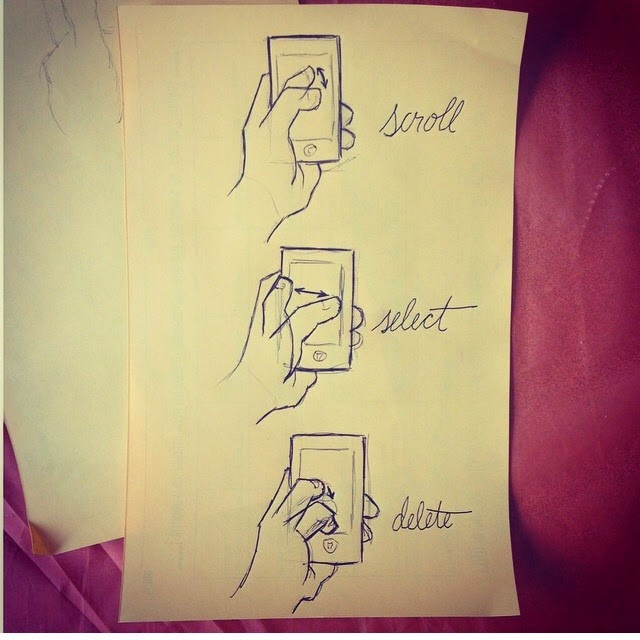 scroll
select
delete